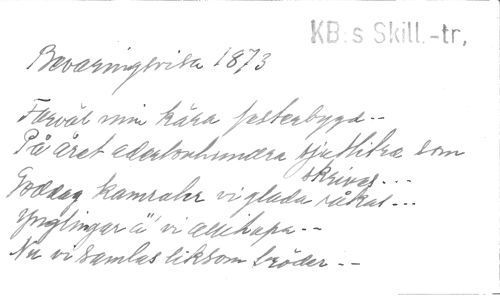 KB:s Skill.-tr,
Beväringsvisa 1873
Farväl min kära fosterbygd--
På året adertonhundra sjuttitre som
skrives...
Goddag kamrater vi glada råkas...
Ynglingar ä' vi allihopa--
Nu vi samlas liksom bröder--